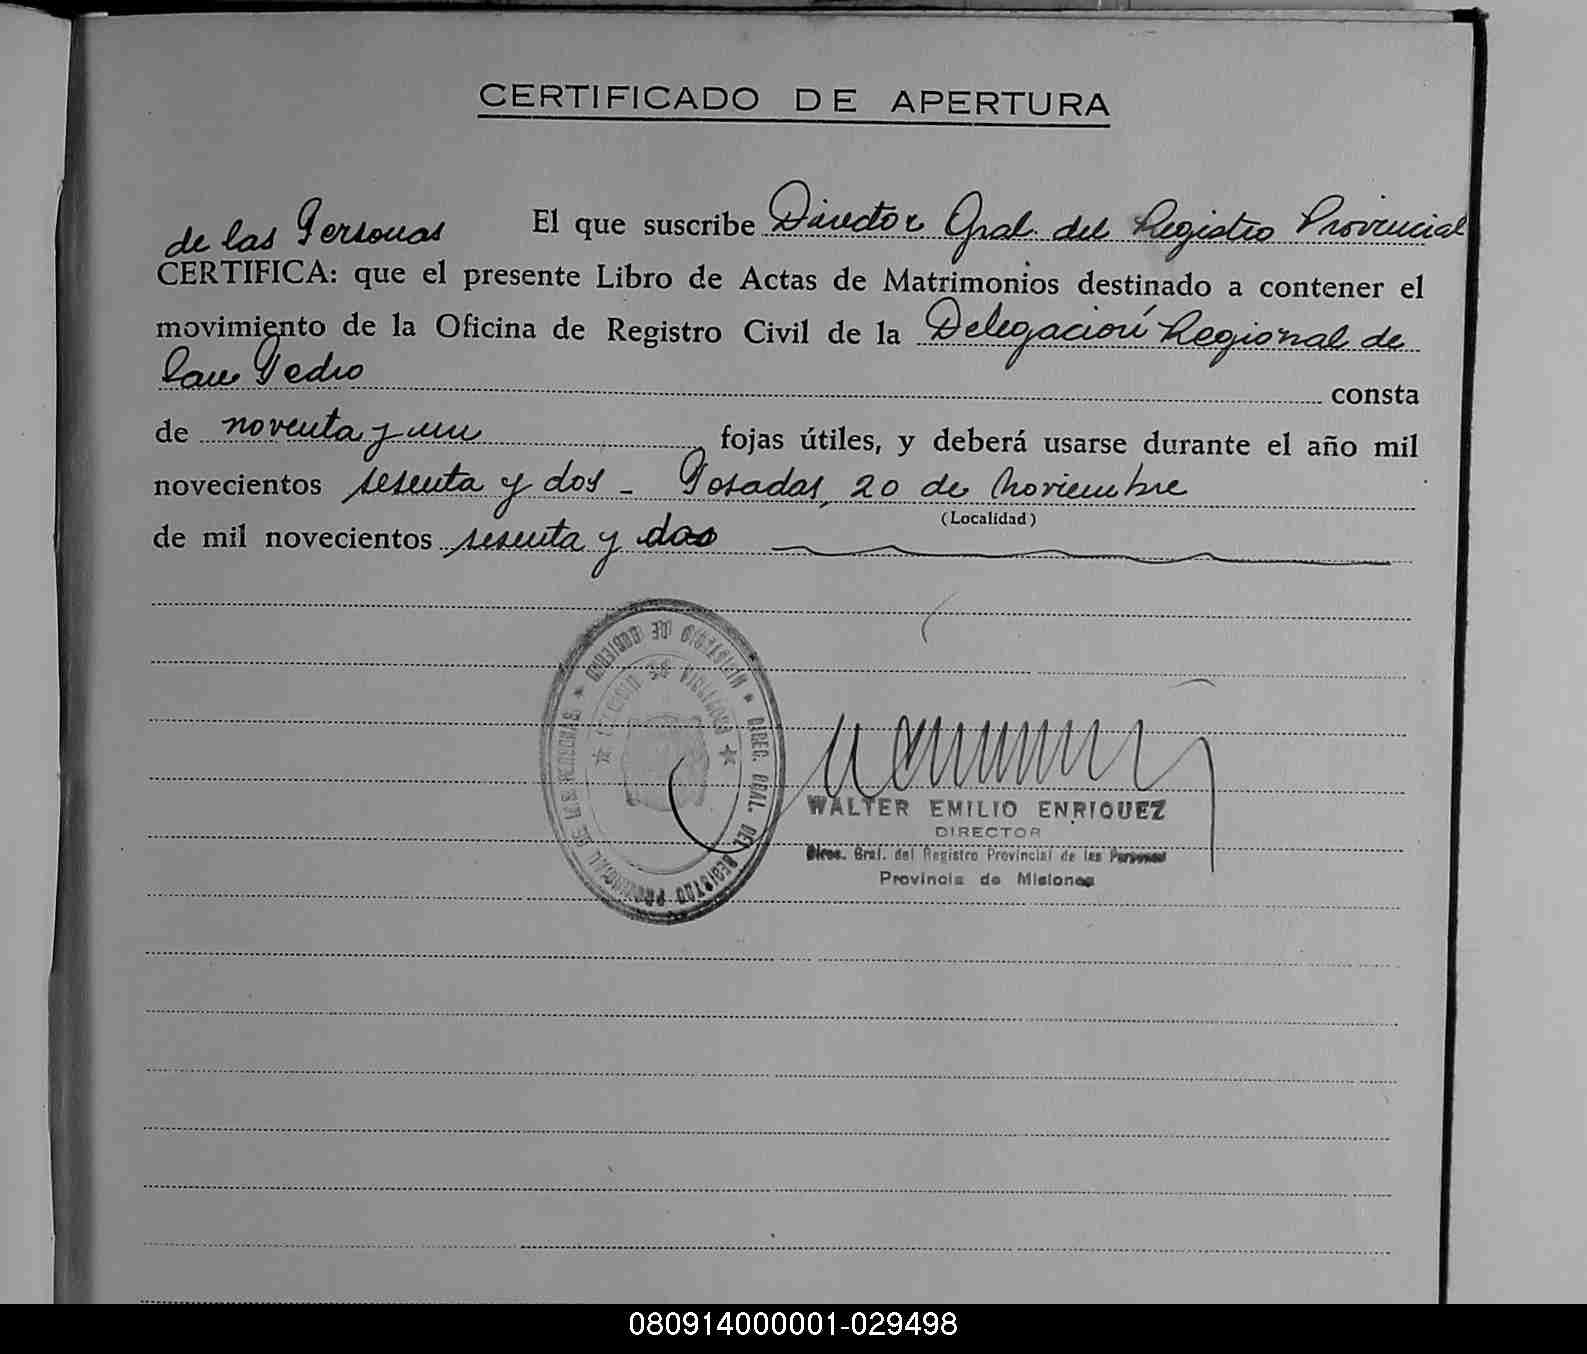 CERTIFICADO DE APERTURA
El que suscribe Director Gral. del Registro Provincial
de las Personas
CERTIFICA: que el presente Libro de Actas de Matrimonios destinado a contener el
movimiento de la Oficina de Registro Civil de la Delegación Regional de
San Pedro consta
de noventa y un fojas útiles, y deberá usarse durante el año mil
novecientos sesenta y dos - Posadas, 20 de Noviembre
(Localidad)
de mil novecientos sesenta y dos
★ MINISTERIO DE GOBIERNO ★ DIREC. GRAL. DEL REGISTRO PROVINCIAL DE LAS PERSONAS
★ PROVINCIA DE MISIONES ★
WALTER EMILIO ENRIQUEZ
DIRECTOR
Direc. Gral. del Registro Provincial de las Personas
Provincia de Misiones
080914000001-029498